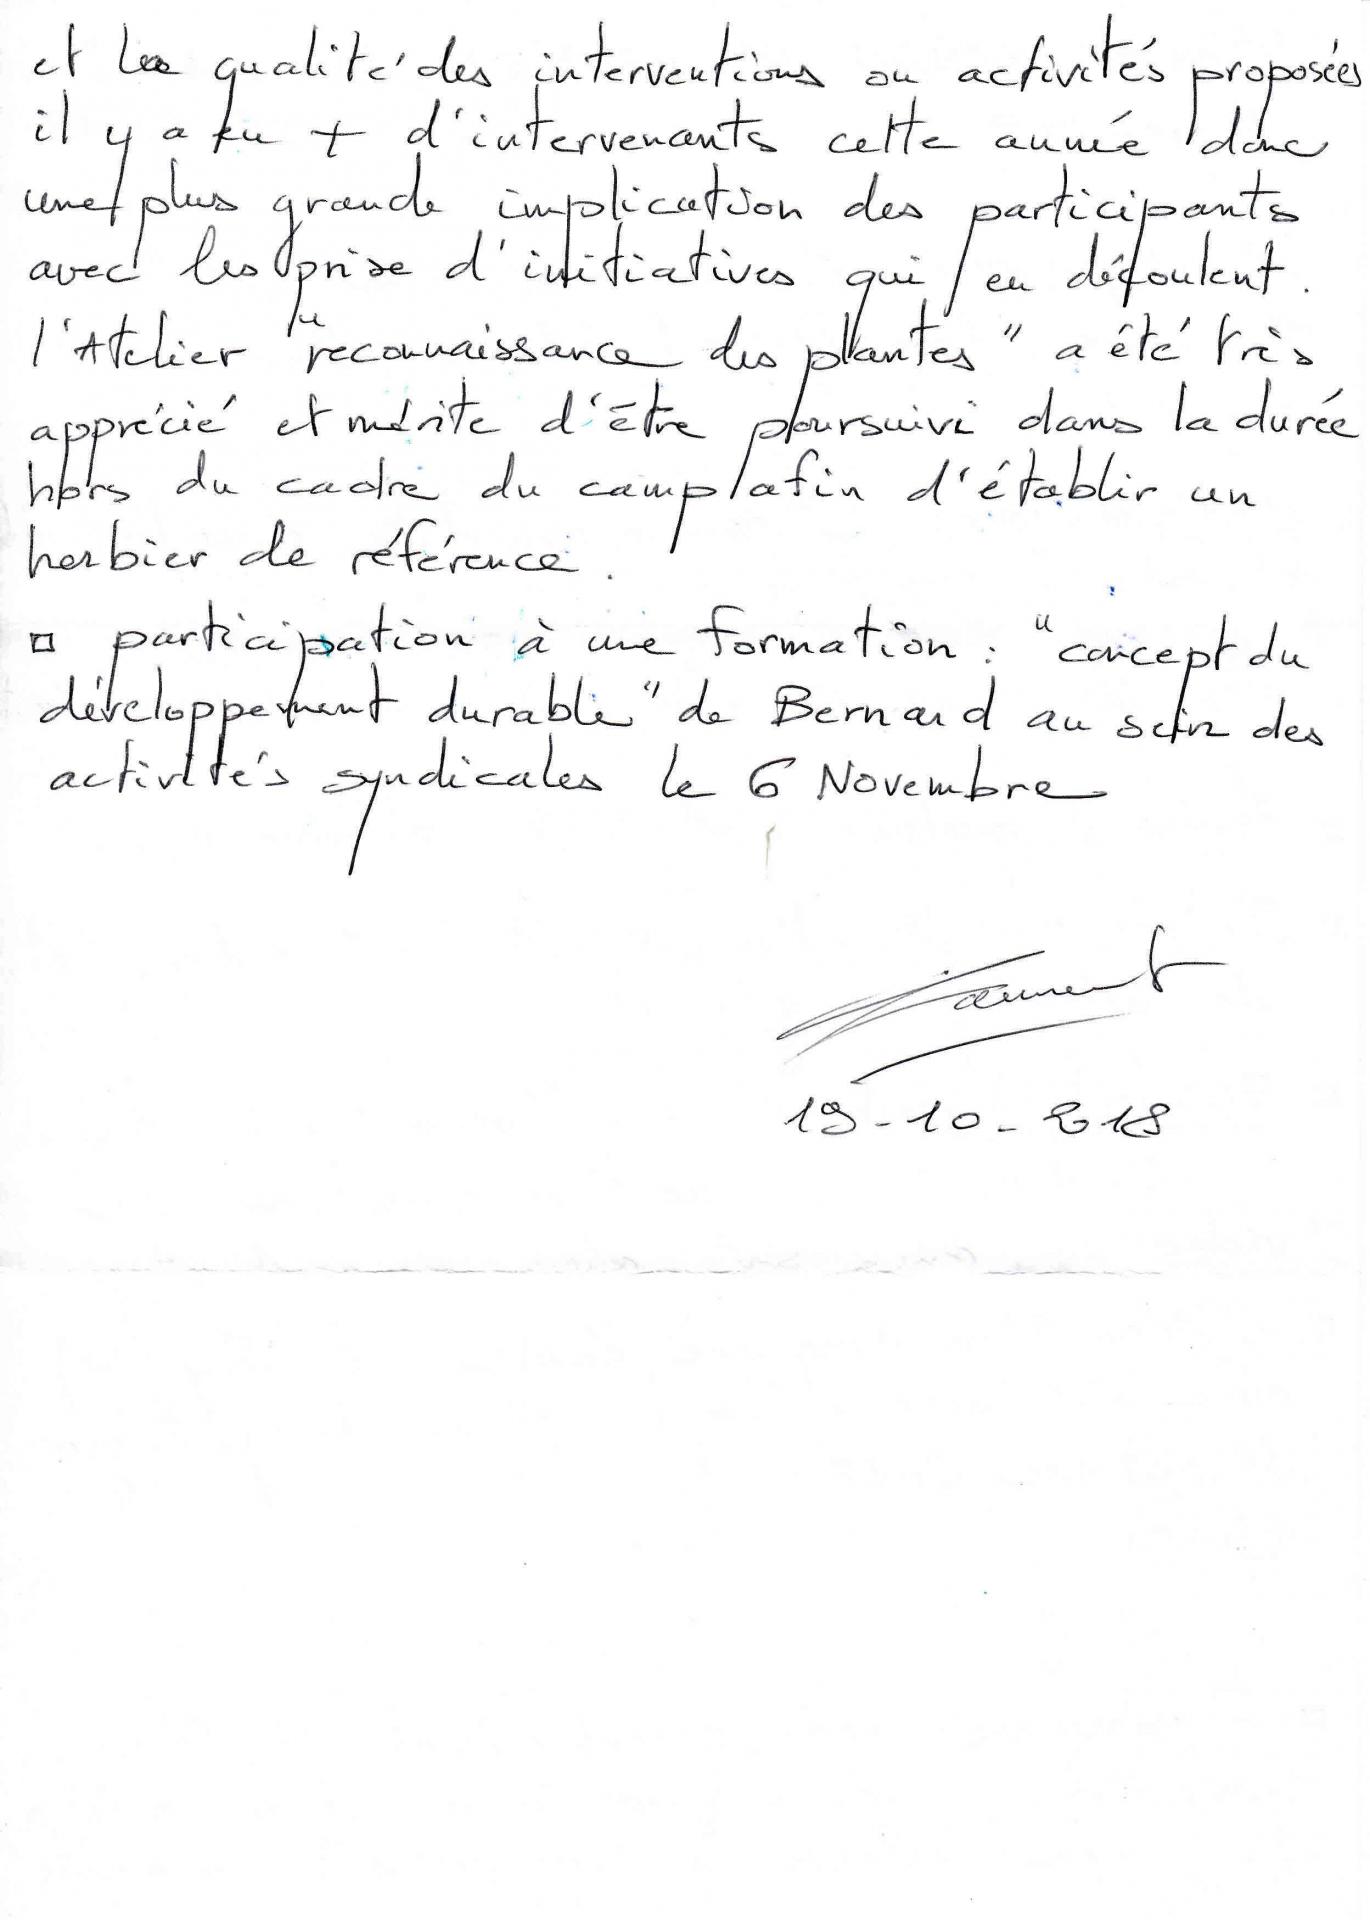 et la qualité des interventions ou activités proposées
il y a eu + d'intervenants cette année donc
une plus grande implication des participants
avec les prise d'initiatives qui en découlent.
l'Atelier "reconnaissance des plantes" a été très
apprécié et mérite d'être poursuivi dans la durée
hors du cadre du camp afin d'établir un
herbier de référence.
□ participation à une formation : "concept du
développement durable" de Bernard au sein des
activités syndicales le 6 Novembre
19-10-2018